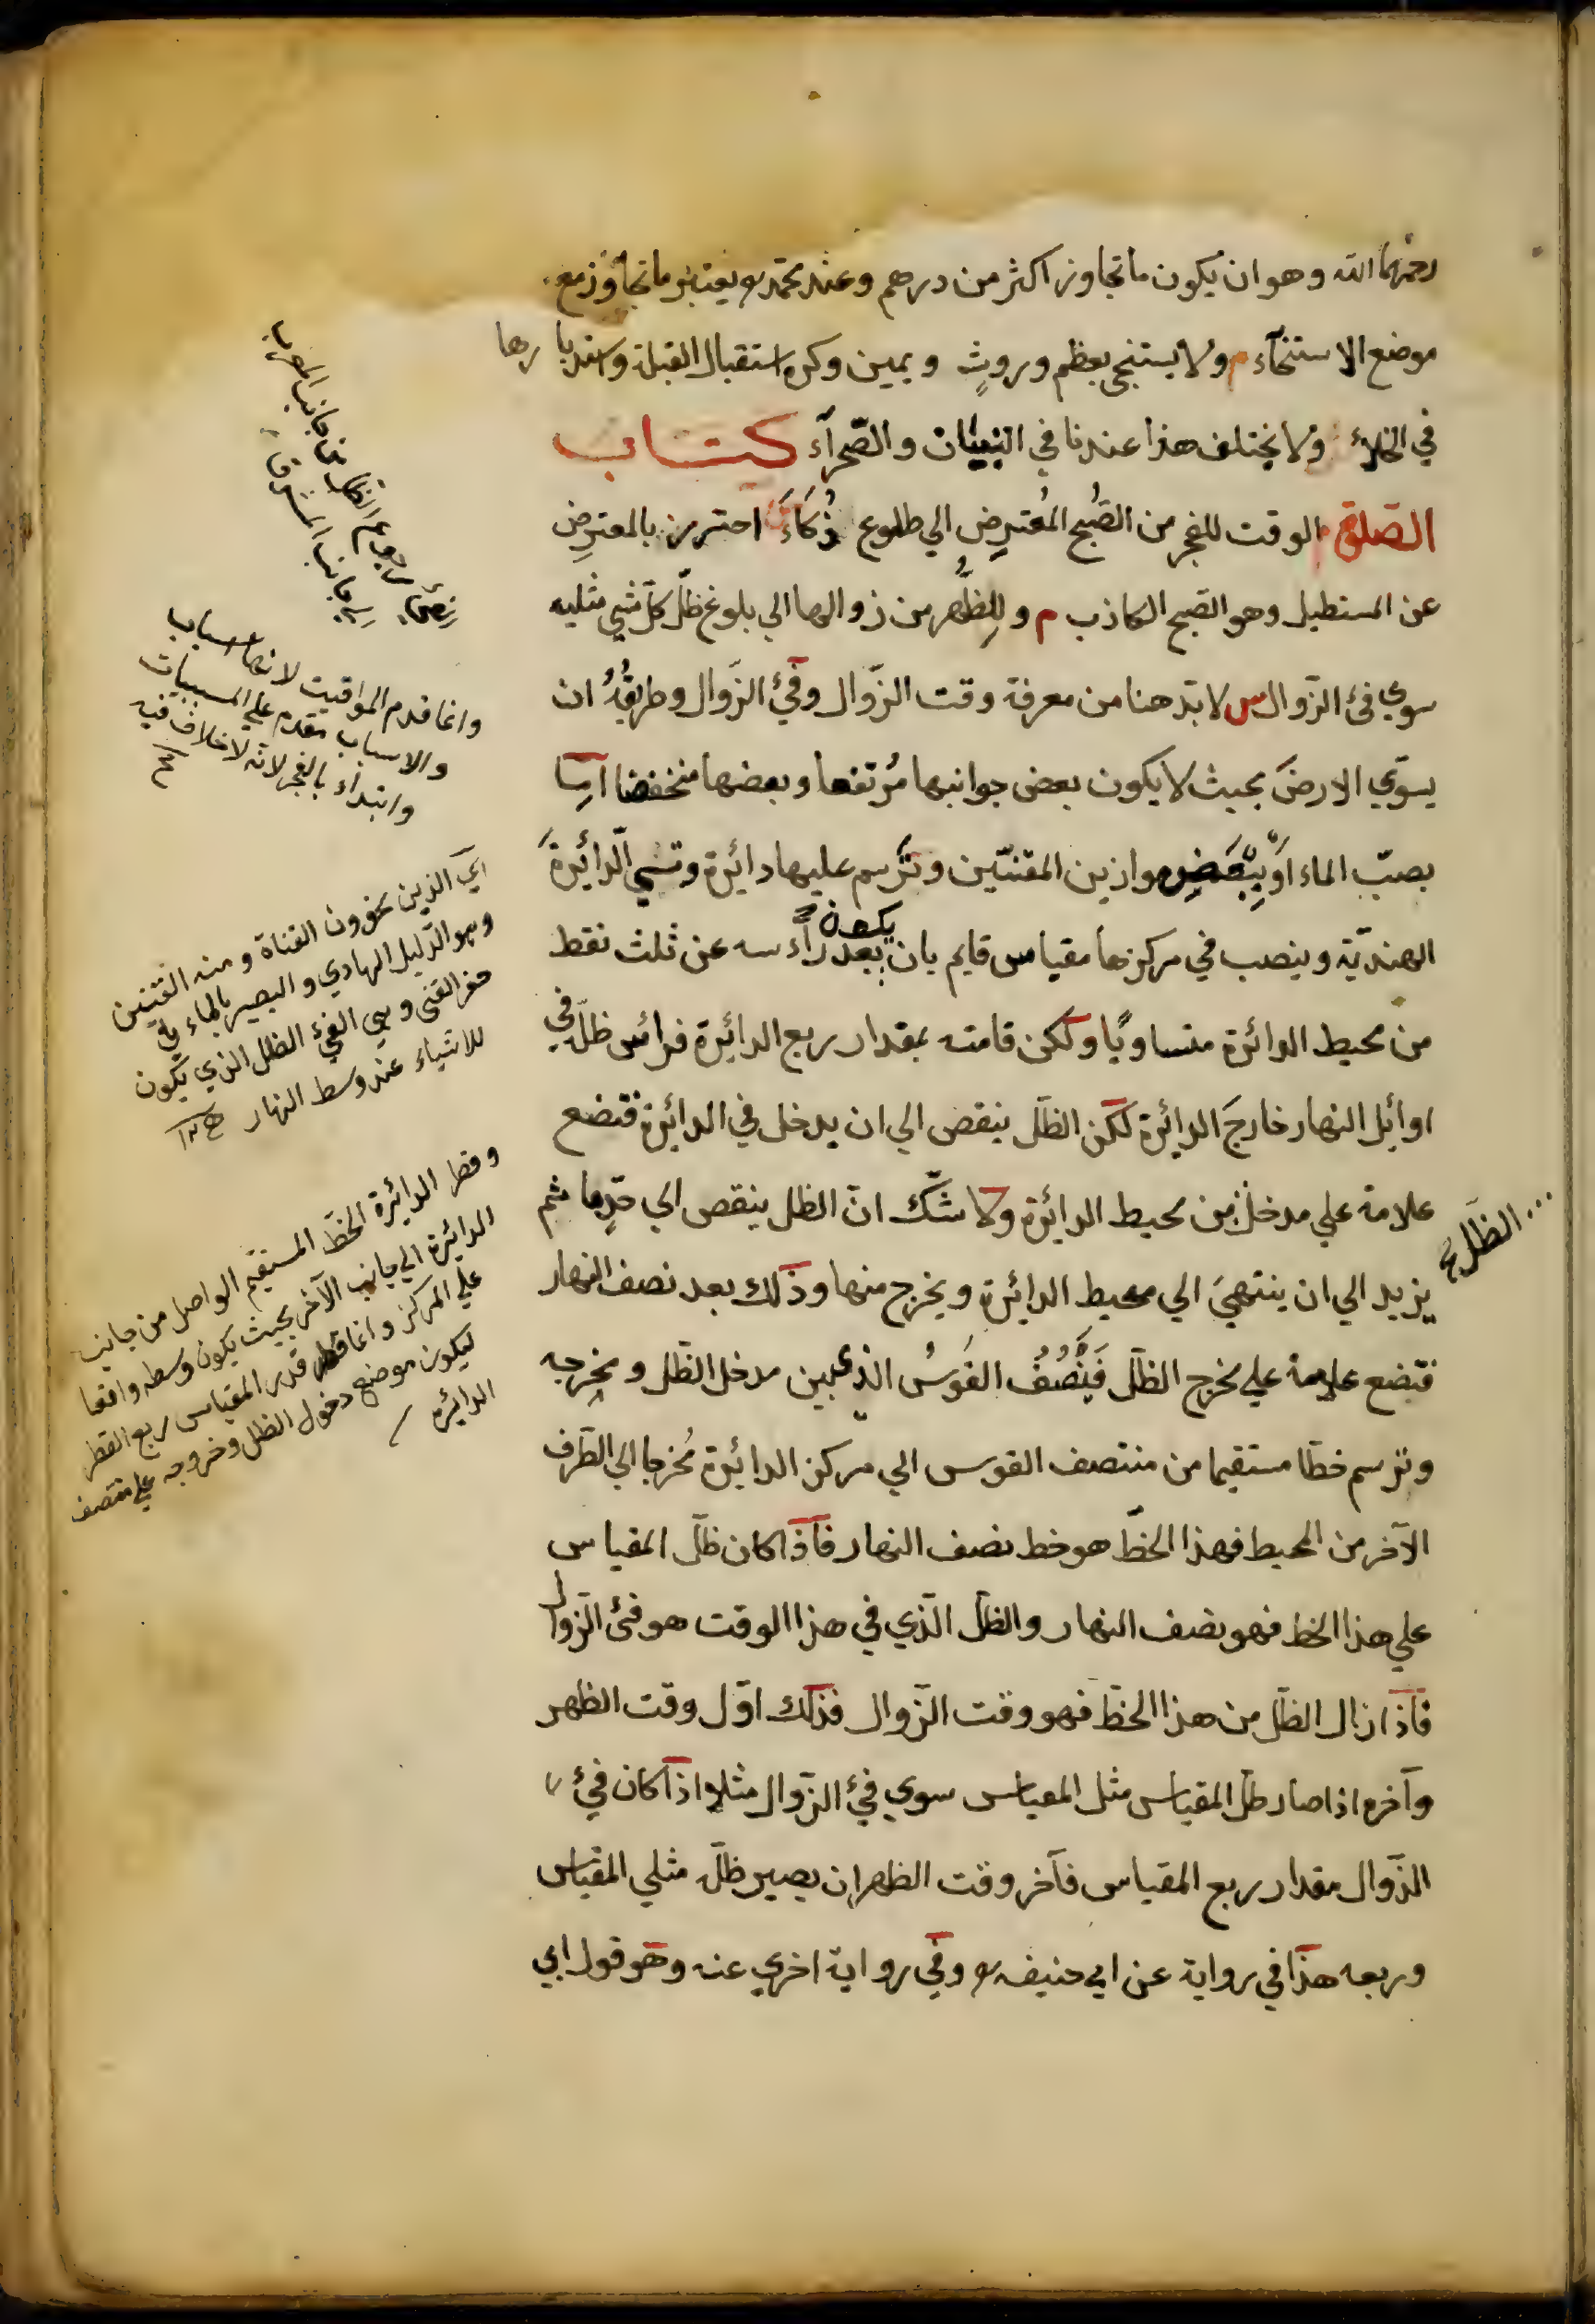 رحمهما الله وهو ان يكون ما تجاوز اكثر من درهم وعند محمد رح يعتبر ما تجاوز مع
موضع الاستنجآء م ولا يستنجي بعظم وروثٍ ويمين وكره استقبال القبلة واستدبارها
في الخلاء ولا يختلف هذا عندنا في البنيان والصّحرآء كتاب
الصّلوة الوقت للفجر من الصُّبح المُعترِض الي طلوع ذُكَاءَ احترز بالمعترِض
عن المستطيل وهو الصّبح الكاذب م وللِظُّهر من زوالها الي بلوغ ظلّ كلّ شيئ مثليه
سوي فئ الزّوال س لا بدّ هنا من معرفة وقت الزّوال وفيْ الزّوال وطريقُهُ ان
يسوّي الارضَ بحيث لا يكون بعض جوانبها مُرتفعا وبعضها منخفضا امّا
بصبّ الماء اَو بِبَعَضِ موازين المقنّين وتُرسم عليها دائرة وتسمّي الدّائرةَ
الهنديّة وينصب في مركزها مقياس قايم بان يكون بعد رأسه عن ثلث نقط
من محيط الدائرة متساويًا ولكن قامته بمقدار ربع الدائرة فرأس ظلّه في
اوائل النهار خارجَ الدائرة لكن الظلّ ينقص الي ان يدخل في الدائرة فتضع
علامة علي مدخل من محيط الدائرة ولا شكّ انّ الظل ينقص الي حدٍّ ما ثم
... الظلّ صح
يزيد الي ان ينتهيَ الي محيط الدائرة ويخرج منها وذلك بعد نصف النهار
فتضع علامة علي مخرج الظلّ فَتُنَصِّفُ القَوسُ الذي بين مدخل الظّل ومخرجه
وترسم خطّا مستقيما من منتصف القوس الي مركز الدائرة مُخرجا الي الطّرف
الآخر من المحيط فهذا الخطّ هو خط نصف النهار فاذا كان ظلّ المقياس
علي هذا الخط فهو نصف النهار والظلّ الّذي في هذا الوقت هو فئ الزّوال
فاذا زال الظلّ من هذا الخطّ فهو وقت الزّوال فذلك اوّل وقت الظهر
وآخره اذا صار ظلّ المقياس مثل المقياس سوي فيْ الزّوال مثلا اذا كان فيْ
الزّوال مقدار ربع المقياس فآخر وقت الظهر ان يصير ظلّه مثلي المقياس
وربعه هذا في رواية عن ابي حنيفه رح وفي رواية اخري عنه وهو قول ابي
رجوع الظل من جانب المغرب
الي جانب المشرق
وانما قدم المواقيت لانها اسباب
والاسباب مقدم علي المسببات
وابتداء بالفجر لانه لا خلاف فيه
اي الذين يحفرون القناة ومنه القنقن
وهو الدّليل الهادي والبصير بالماء في
حفر القنى وهي الفئ الظل الذي يكون
للاشياء عند وسط النهار
وقطر الدائرة الخطّ المستقيم الواصل من جانب
الدائرة الي جانب الآخر بحيث يكون وسطه واقعا
علي المركز وانما قدر المقياس ربع القطر
ليكون موضع دخول الظل وخروجه علي منتصف
الدائرة